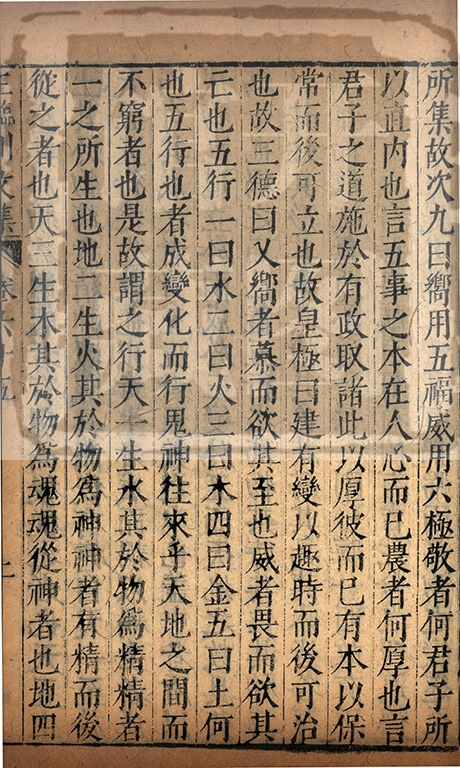 所集故次九曰嚮用五福威用六極敬者何君子所
以直内也言五事之本在人心而已農者何厚也言
君子之道施於有政取諸此以厚彼而已有本以保
常而後可立也故皇極曰建有變以趣時而後可治
也故三德曰乂嚮者慕而欲其至也威者畏而欲其
亡也五行一曰水二曰火三曰木四曰金五曰土何
也五行也者成變化而行鬼神往來乎天地之間而
不窮者也是故謂之行天一生水其於物爲精精者
一之所生也地二生火其於物爲神神者有精而後
從之者也天三生木其於物爲魂魂從神者也地四
王臨川文集 卷六十五